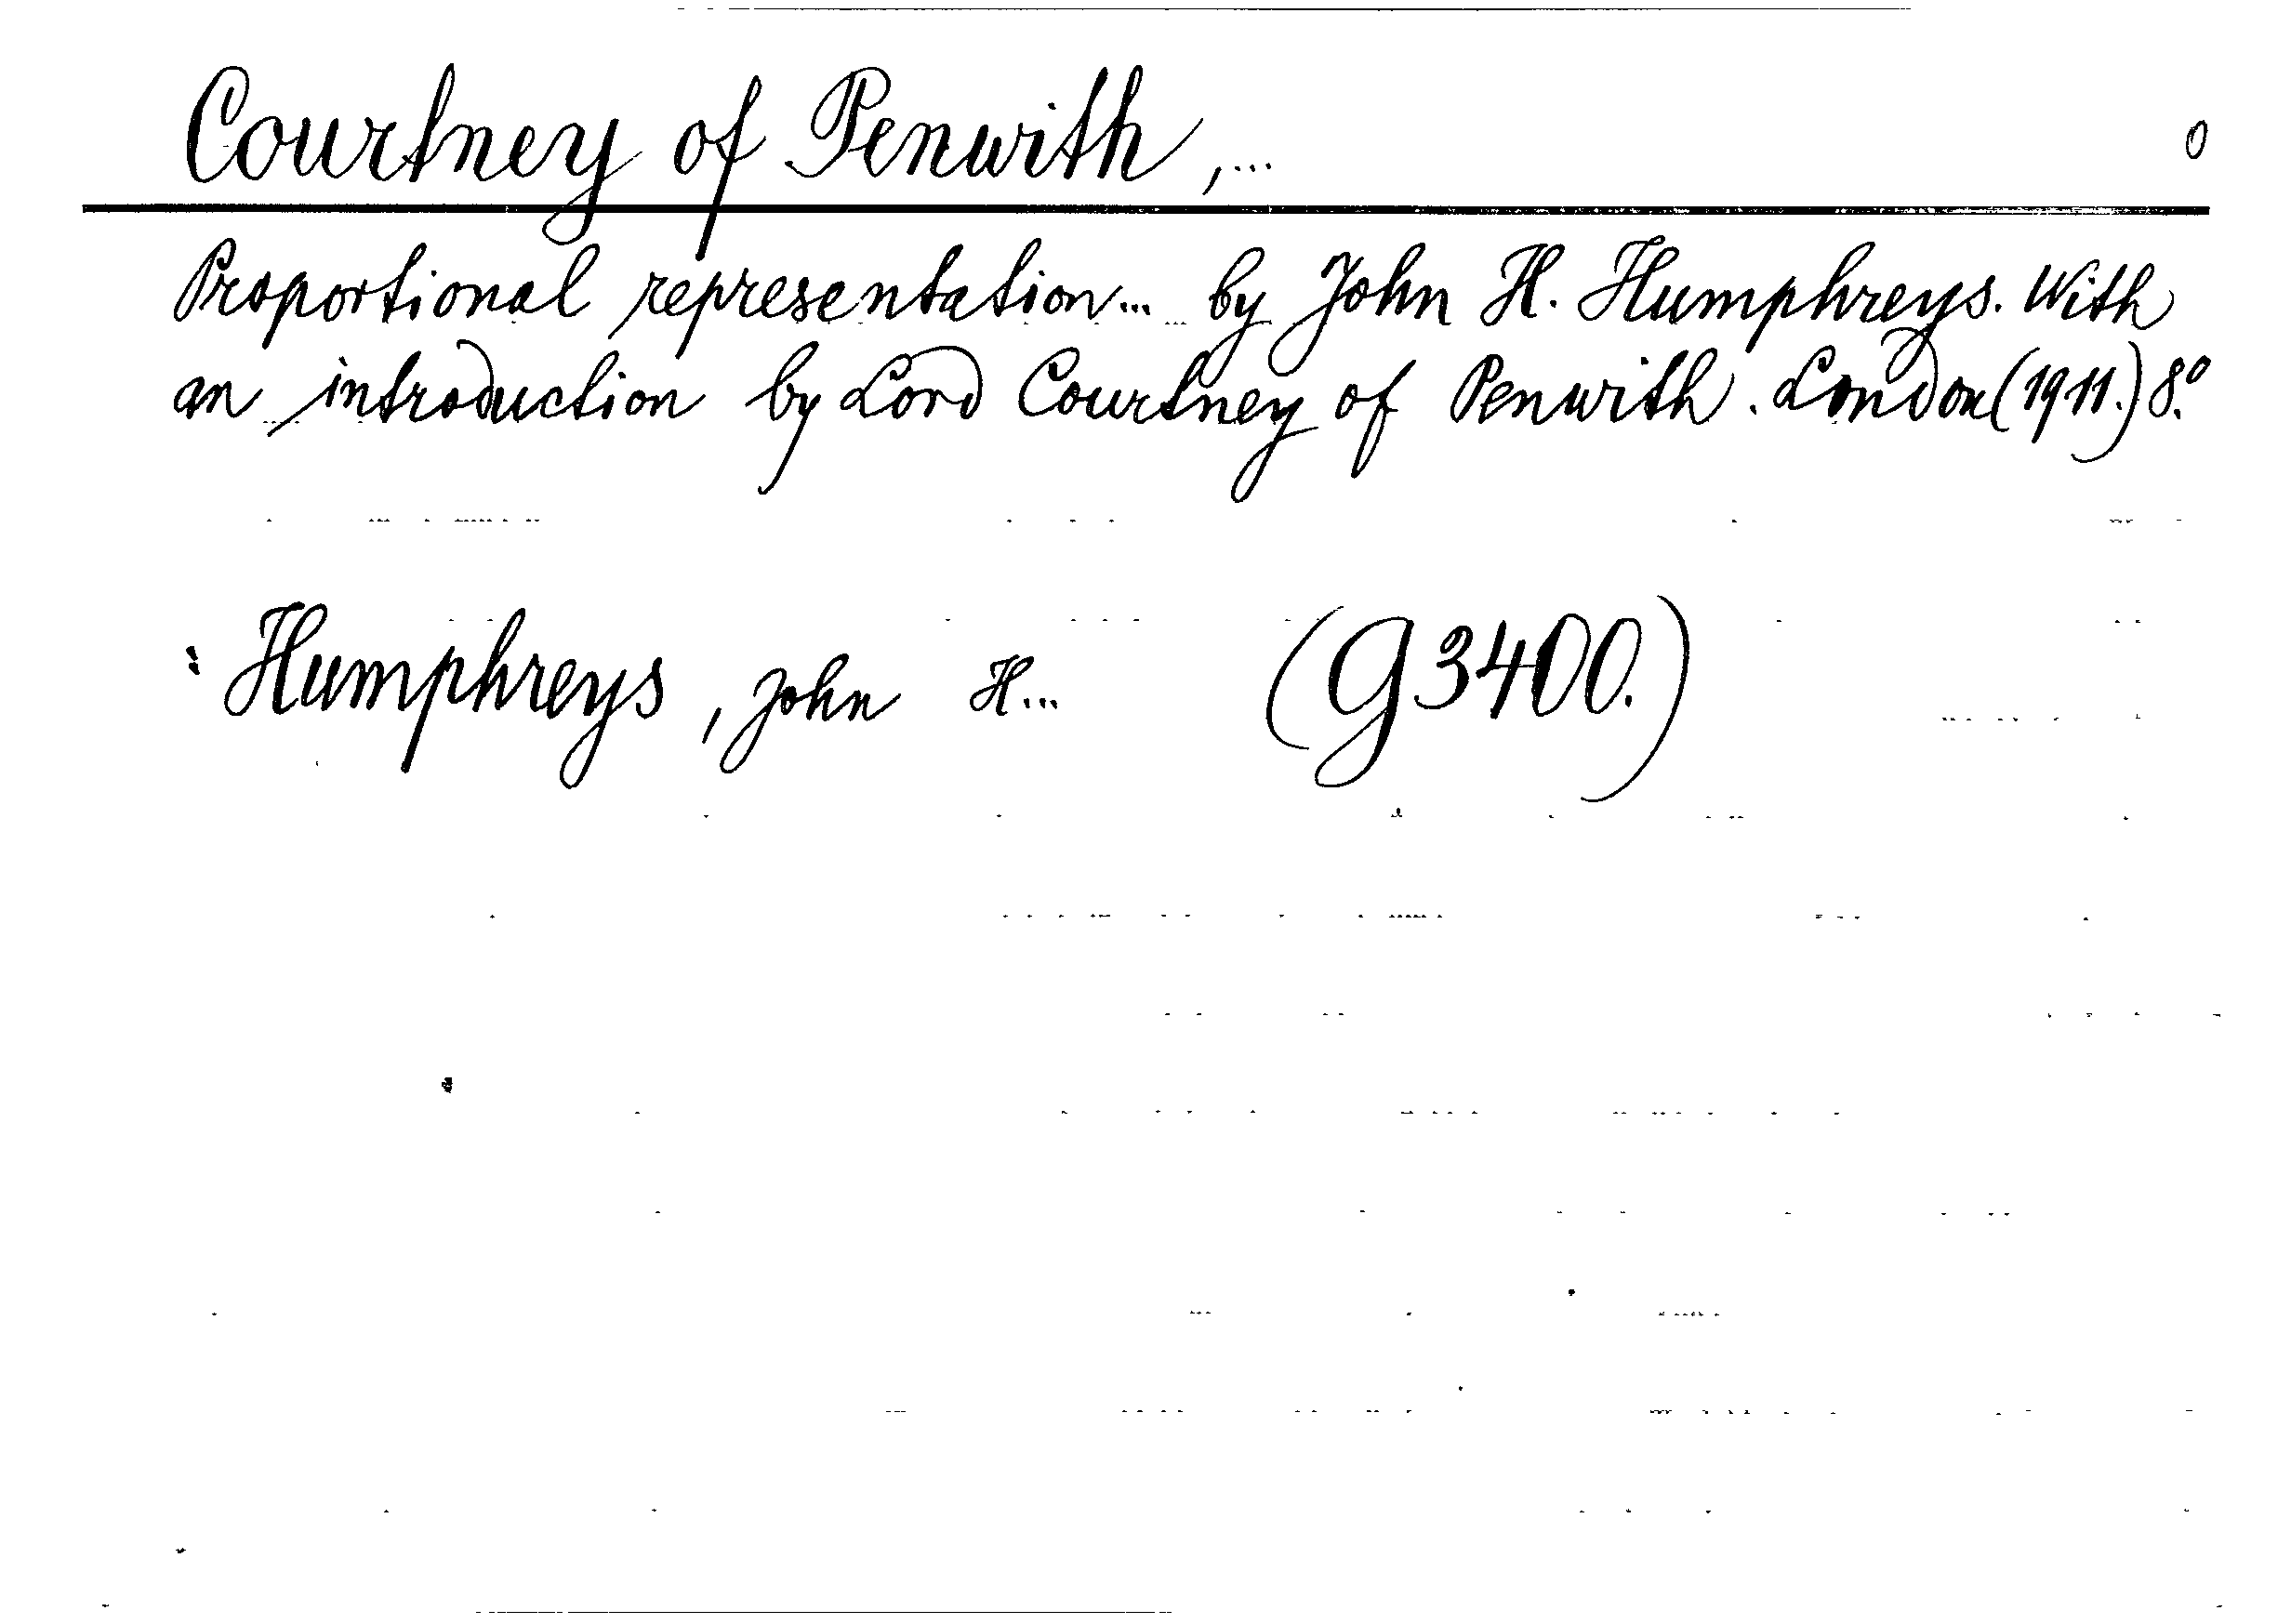 Courtney of Penwith,... 0
Proportional representation... by John H. Humphreys. With
an introduction by Lord Courtney of Penwith. London (1911.) 8.º
: Humphreys, John H... (G3400.)